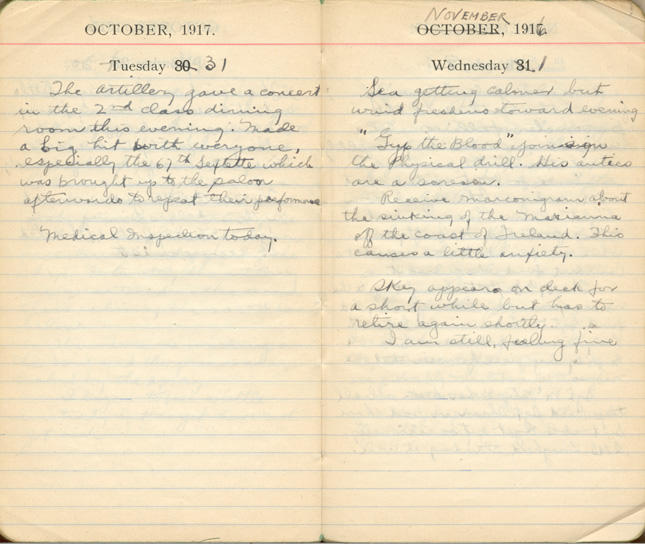 OCTOBER, 1917.
Tuesday 30 31
The artillery gave a concert
in the 2nd class dining
room this evening. Made
a big hit with everyone,
especially the 67th Septette which
was brought up to the saloon
afterwards to repeat their performance
Medical Inspection today.
NOVEMBER
OCTOBER, 1916
Wednesday 31 1
Sea getting calmer but
wind freshens toward evening
"Gyp the Blood" joins in
the Physical drill. His antics
are a scream.
Receive marconigram about
the sinking of the Marianna
off the coast of Ireland. This
causes a little anxiety.
Skey appears on deck for
a short while but has to
retire again shortly.
I am still feeling fine